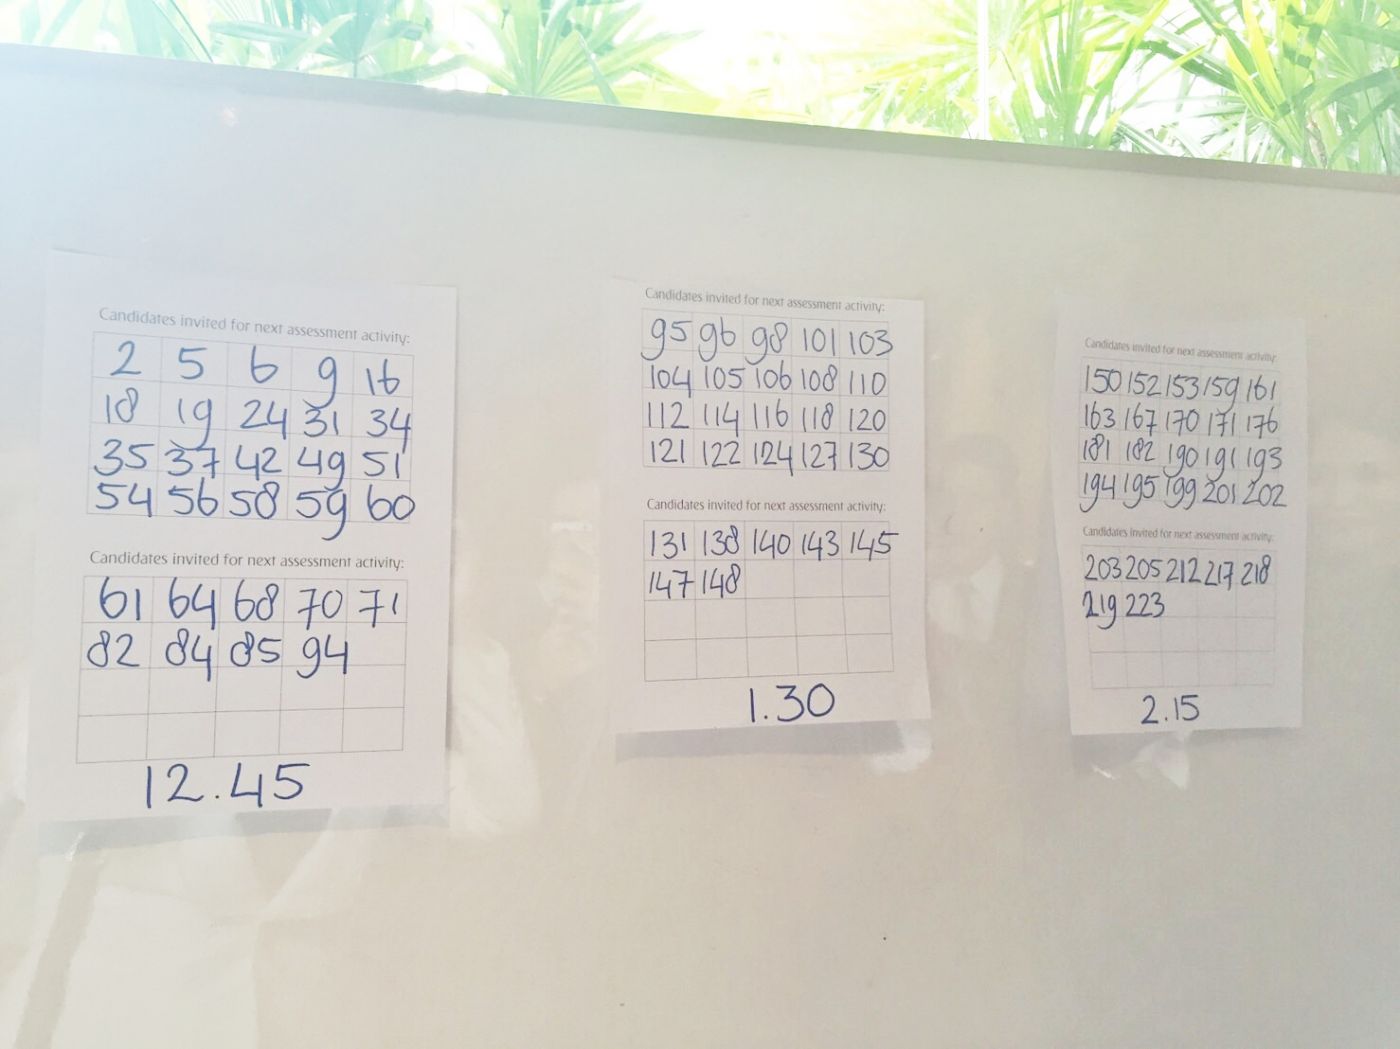 Candidates invited for next assessment activity:
2 5 6 9 16
18 19 24 31 34
35 37 42 49 51
54 56 58 59 60
Candidates invited for next assessment activity:
61 64 68 70 71
82 84 85 94
12.45
Candidates invited for next assessment activity:
95 96 98 101 103
104 105 106 108 110
112 114 116 118 120
121 122 124 127 130
Candidates invited for next assessment activity:
131 138 140 143 145
147 148
1.30
Candidates invited for next assessment activity:
150 152 153 159 161
163 167 170 171 176
181 182 190 191 193
194 195 199 201 202
Candidates invited for next assessment activity:
203 205 212 217 218
219 223
2.15